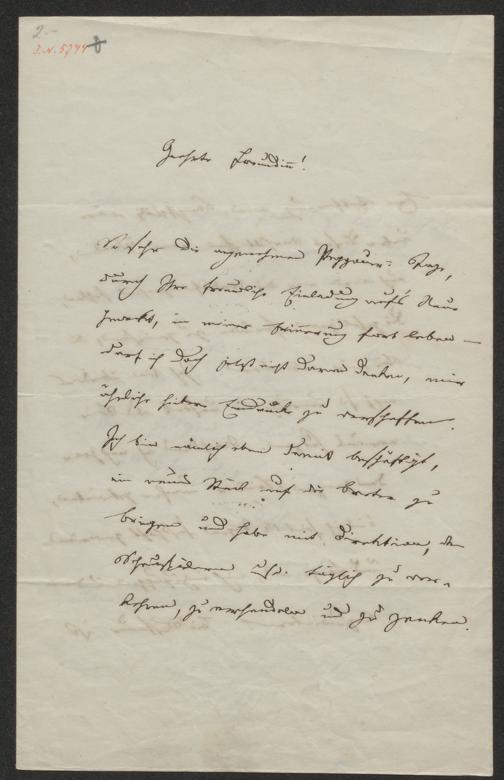 2.-
I.N. 5744
Geehrte Freundin!
So sehr die angenehmen Tage,
durch Ihre freundliche Einladung aufs Neue
geweckt, in meiner Erinnerung fort leben —
darf ich doch jetzt nicht daran denken, mir
ähnliche heitere Eindrücke zu verschaffen.
Ich bin nämlich eben damit beschäftigt,
ein neues Stück auf die Bretter zu
bringen und habe mit Direktion, den
Schauspielern usw. täglich zu ver-
kehren, zu verhandeln und zu zanken.